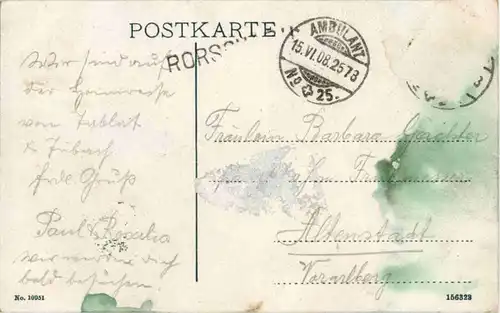 POSTKARTE
AMBULANT
15.VI.08.2573
No 25.
Wir sind auf
der Heimreise
von Tablat
frdl. Gruß
Paul & Rosalia
wir werden dich
bald besuchen
Fräulein Barbara
Altenstadt
Vorarlberg
No. 10951
156323